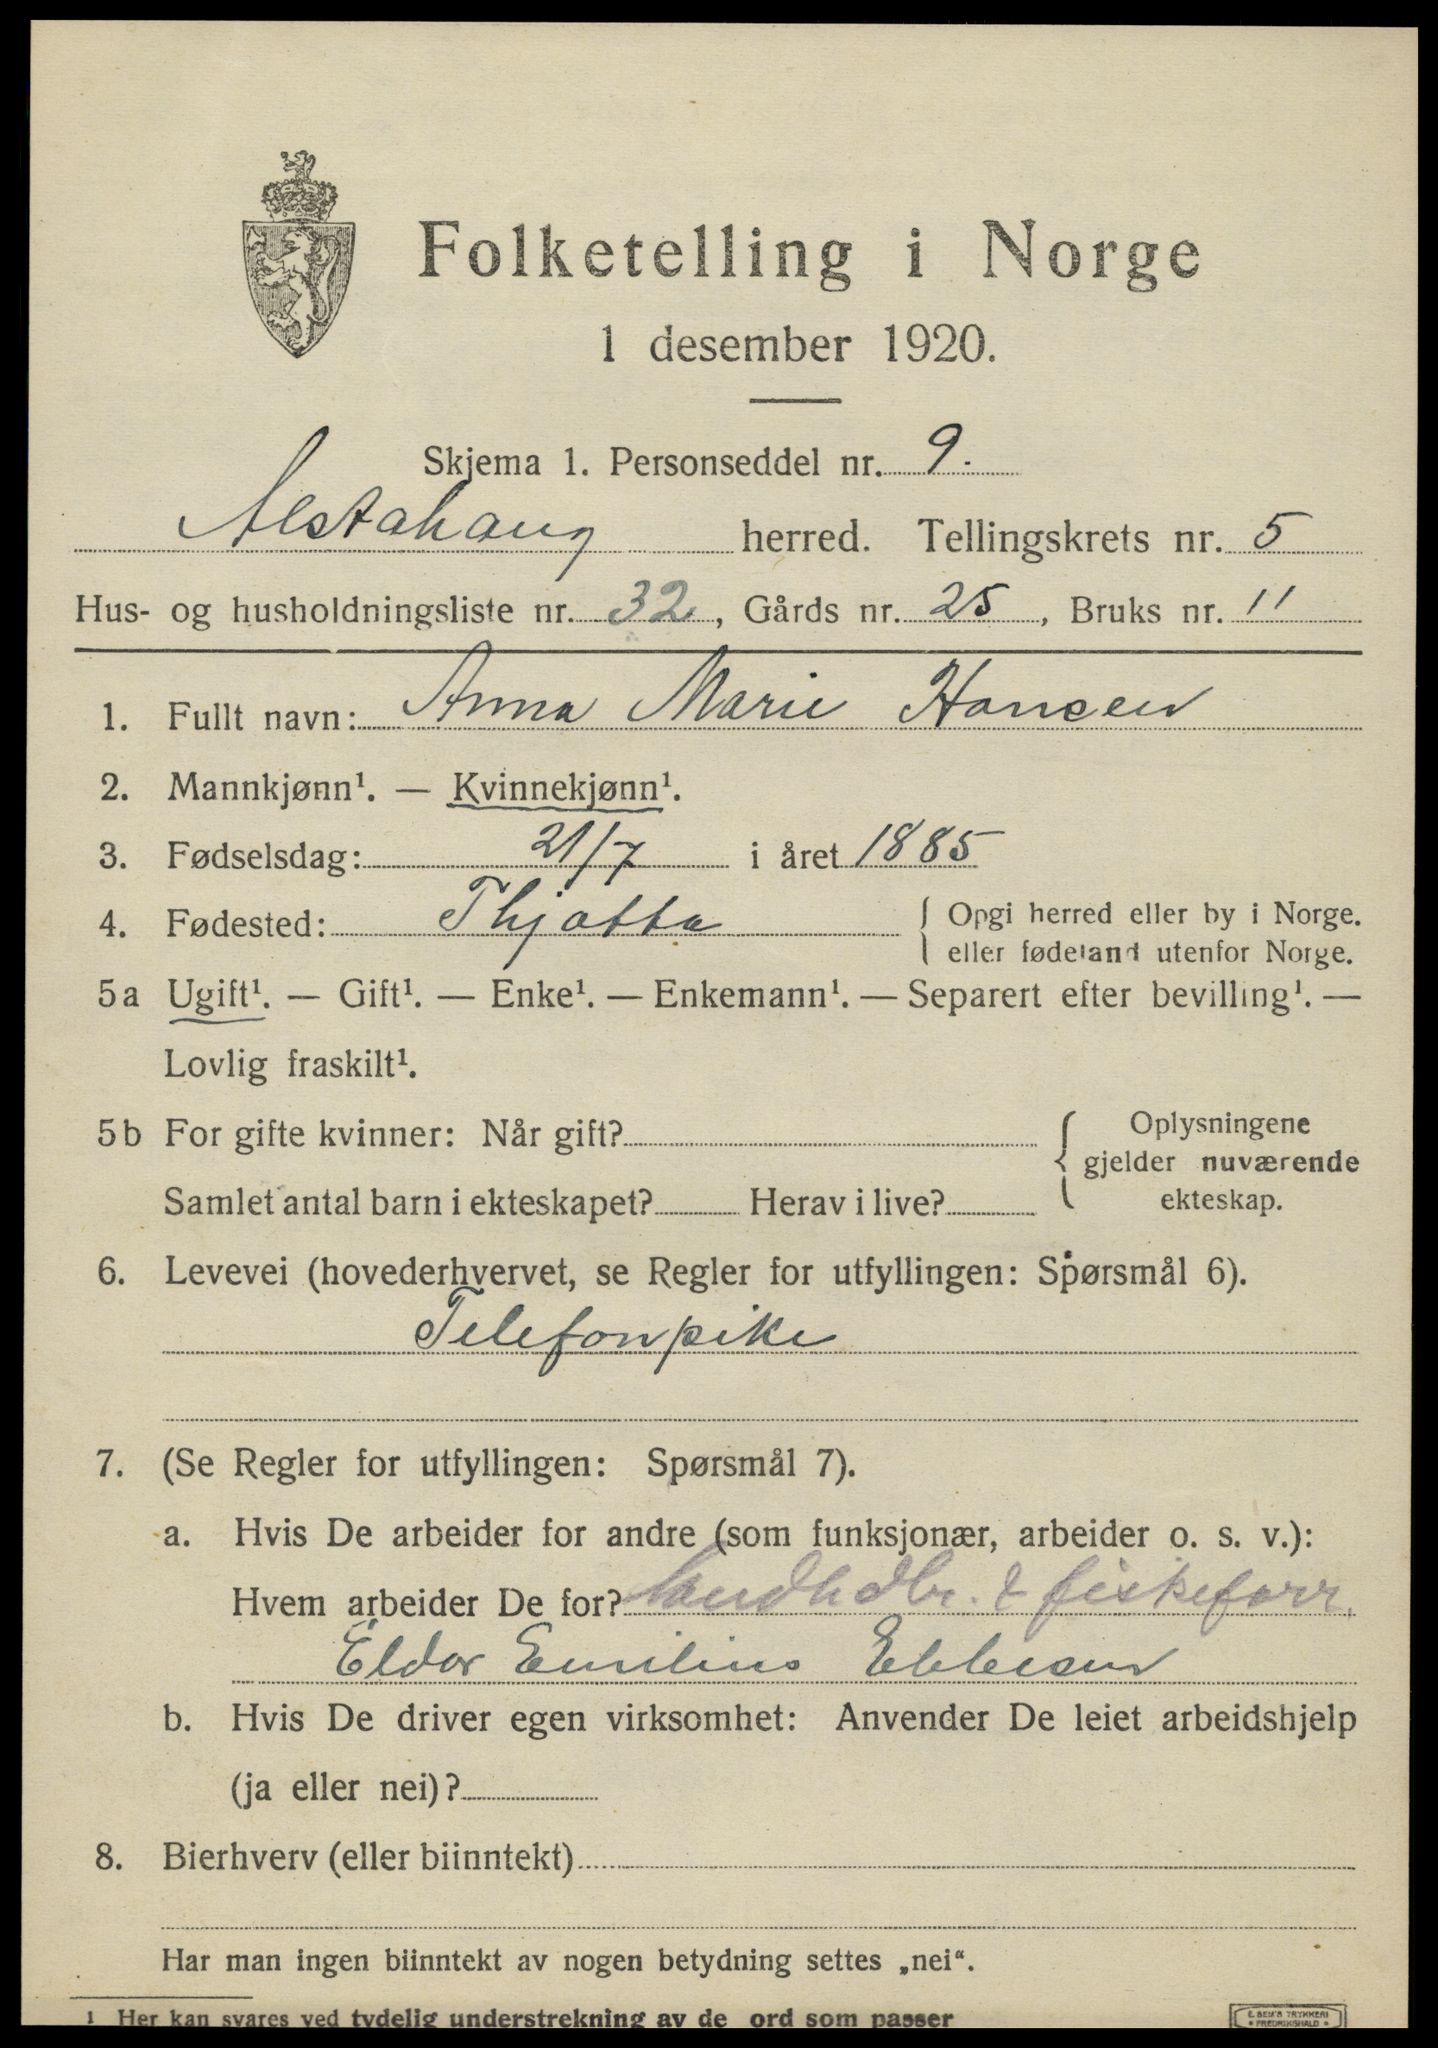 Folketelling i Norge
1 desember 1920.
Skjema 1. Personseddel nr. 9.
Alstahaug herred. Tellingskrets nr. 5
Hus- og husholdningsliste nr. 32, Gårds nr. 25, Bruks nr. 11
1. Fullt navn: Anna Marie Hansen
2. Mannkjønn¹. — Kvinnekjønn¹.
3. Fødselsdag: 21/7 i året 1885
4. Fødested: Thjøtta { Opgi herred eller by i Norge.
eller fødeland utenfor Norge.
5a Ugift¹. — Gift¹. — Enke¹. — Enkemann¹. — Separert efter bevilling¹. —
Lovlig fraskilt¹.
5b For gifte kvinner: Når gift? { Oplysningene
gjelder nuværende
ekteskap.
Samlet antal barn i ekteskapet? Herav i live?
6. Levevei (hovederhvervet, se Regler for utfyllingen: Spørsmål 6).
Telefonpike
7. (Se Regler for utfyllingen: Spørsmål 7).
a. Hvis De arbeider for andre (som funksjonær, arbeider o. s. v.):
Hvem arbeider De for? landhdlr. & fiskeforr.
Eldor Emilius Ebbesen
b. Hvis De driver egen virksomhet: Anvender De leiet arbeidshjelp
(ja eller nei)?
8. Bierhverv (eller biinntekt)
Har man ingen biinntekt av nogen betydning settes „nei“.
1 Her kan svares ved tydelig understrekning av de ord som passer
E. SEM'S TRYKKERI
• FREDRIKSHALD •